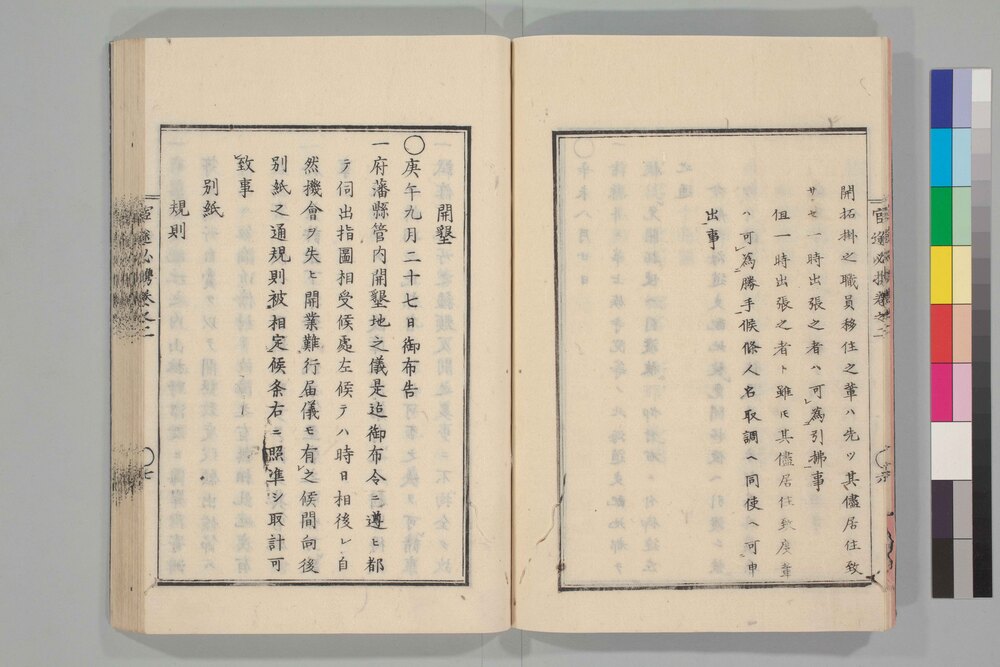 開拓掛之職員移住之輩ハ先ツ其儘居住致
サセ一時出張之者ハ可為引拂事
但一時出張之者ト雖モ其儘居住致度輩
ハ可為勝手候條人名取調ヘ同使ヘ可申
出事
開墾
〇庚午九月二十七日御布告
一府藩縣管内開墾地之儀是迄御布令ニ遵ヒ都
テ伺出指圖相受候處左候テハ時日相後レ自
然機會ヲ失ヒ開業難行届儀モ有之候間向後
別紙之通規則被相定候条右ニ照準シ取計可
致事
別紙
規則
〇七